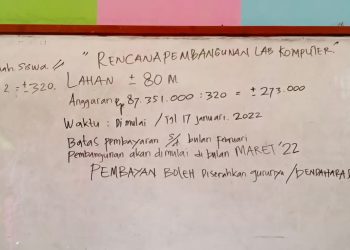 "RENCANA PEMBANGUNAN LAB KOMPUTER"
ah Siswa //
2 = ± 320.
LAHAN ± 80 M
Anggaran Rp 87.351.000 : 320 = ± 273.000
Waktu : Di mulai / Tgl 17 januari. 2022
Batas pembayaran S/d bulan Feruari
Pembangunan akan di mulai di bulan MARET '22
PEMBAYAN BOLEH Diserahkan gurunya / BENDAHARA S